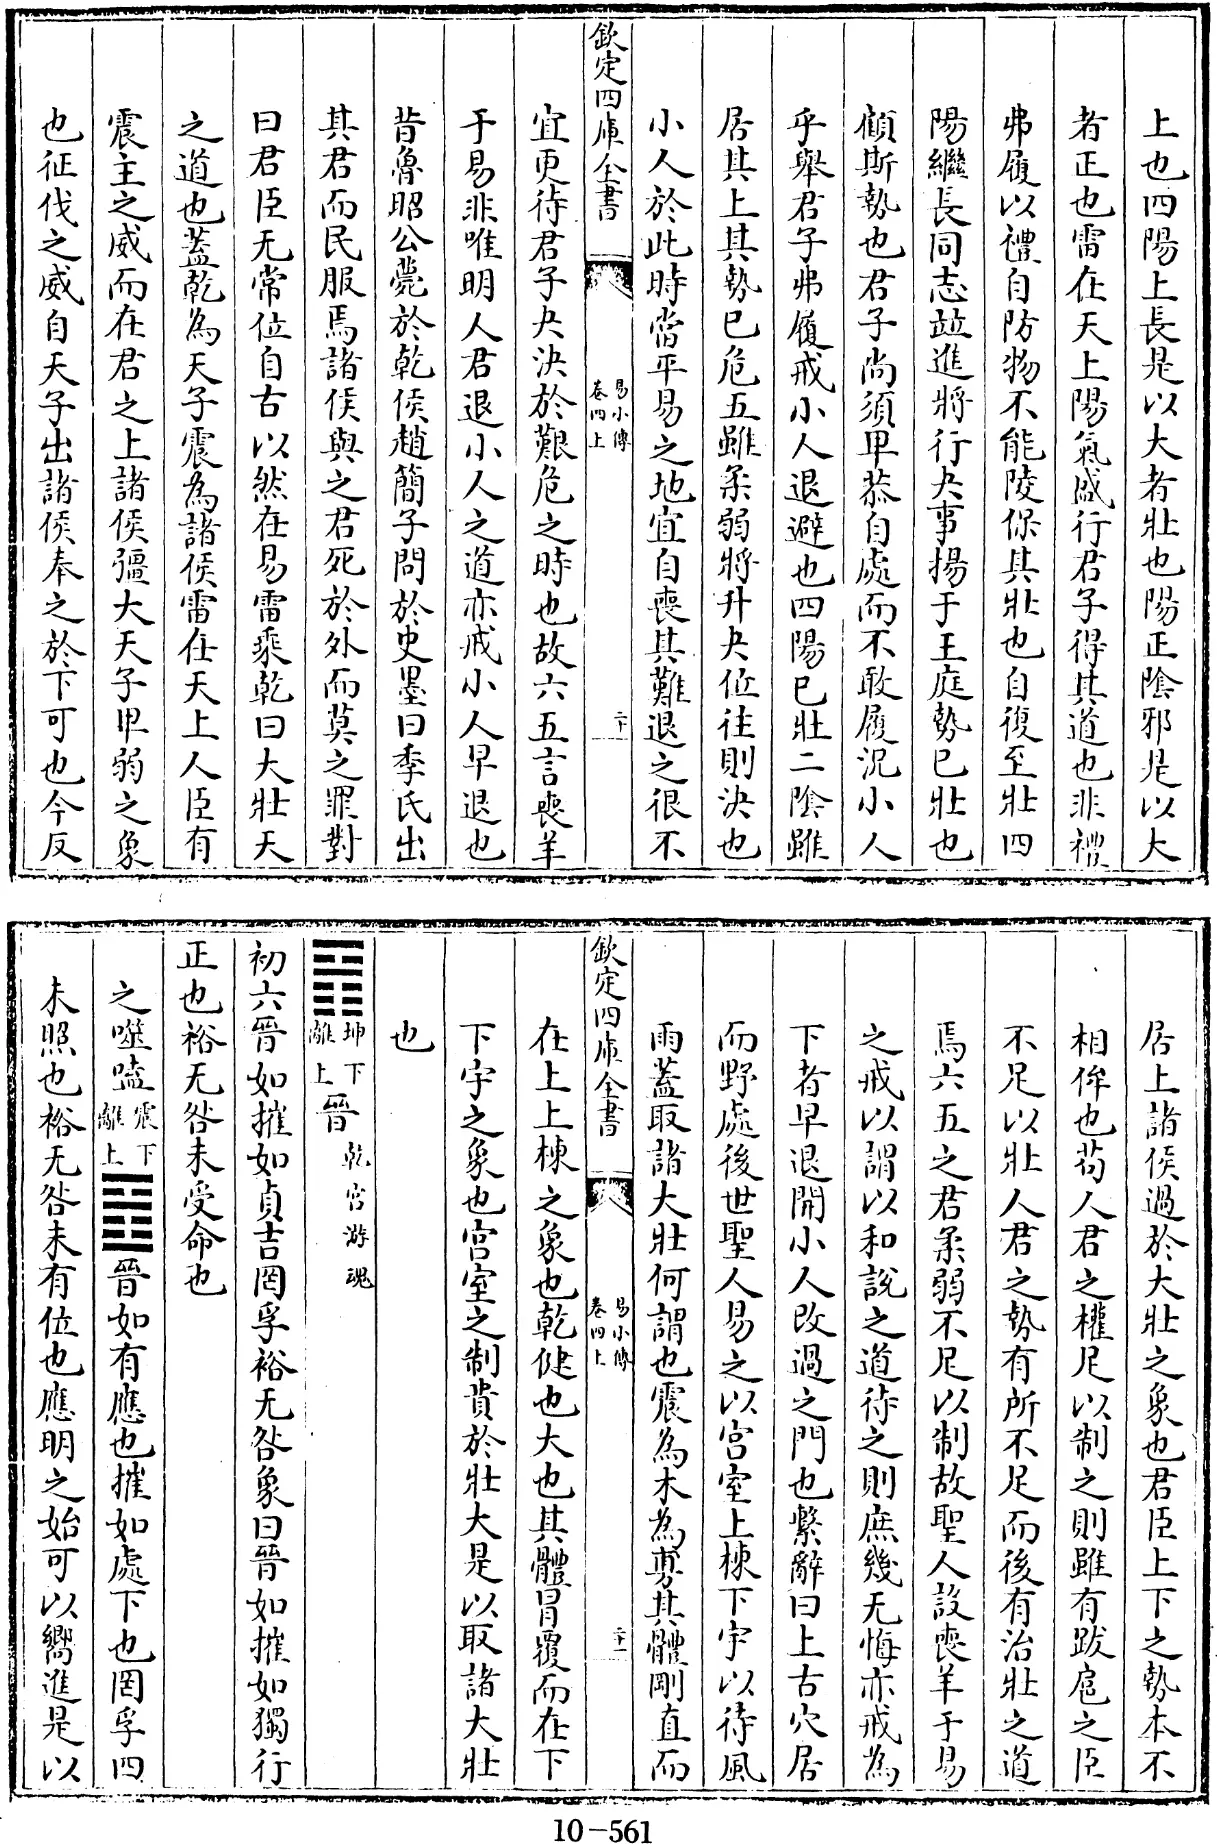 上也四陽上長是以大者壯也陽正陰邪是以大
者正也雷在天上陽氣盛行君子得其道也非禮
弗履以禮自防物不能陵保其壯也自復至壯四
陽繼長同志竝進將行夬事揚于王庭勢已壯也
顧斯勢也君子尚須卑恭自處而不敢履況小人
乎舉君子弗履戒小人退避也四陽已壯二陰雖
居其上其勢已危五雖柔弱將升夬位往則決也
小人於此時當平易之地宜自喪其難退之很不
欽定四庫全書
易小傳
卷四上
二十
宜更待君子夬決於艱危之時也故六五言喪羊
于易非唯明人君退小人之道亦戒小人早退也
昔魯昭公薨於乾侯趙簡子問於史墨曰季氏出
其君而民服焉諸侯與之君死於外而莫之罪對
曰君臣无常位自古以然在易雷乘乾曰大壯天
之道也蓋乾為天子震為諸侯雷在天上人臣有
震主之威而在君之上諸侯彊大天子卑弱之象
也征伐之威自天子出諸侯奉之於下可也今反
居上諸侯過於大壯之象也君臣上下之勢本不
相侔也苟人君之權足以制之則雖有跋扈之臣
不足以壯人君之勢有所不足而後有治壯之道
焉六五之君柔弱不足以制故聖人設喪羊于易
之戒以謂以和說之道待之則庶幾无悔亦戒為
下者早退開小人改過之門也繫辭曰上古穴居
而野處後世聖人易之以宮室上棟下宇以待風
雨蓋取諸大壯何謂也震為木為專其體剛直而
欽定四庫全書
易小傳
卷四上
二十一
在上上棟之象也乾健也大也其體冒覆而在下
下宇之象也宮室之制貴於壯大是以取諸大壯
也
䷢坤下離上晉乾宮游魂
初六晉如摧如貞吉罔孚裕无咎象曰晉如摧如獨行
正也裕无咎未受命也
之噬嗑震下離上䷔晉如有應也摧如處下也罔孚四
未照也裕无咎未有位也應明之始可以嚮進是以
10-561